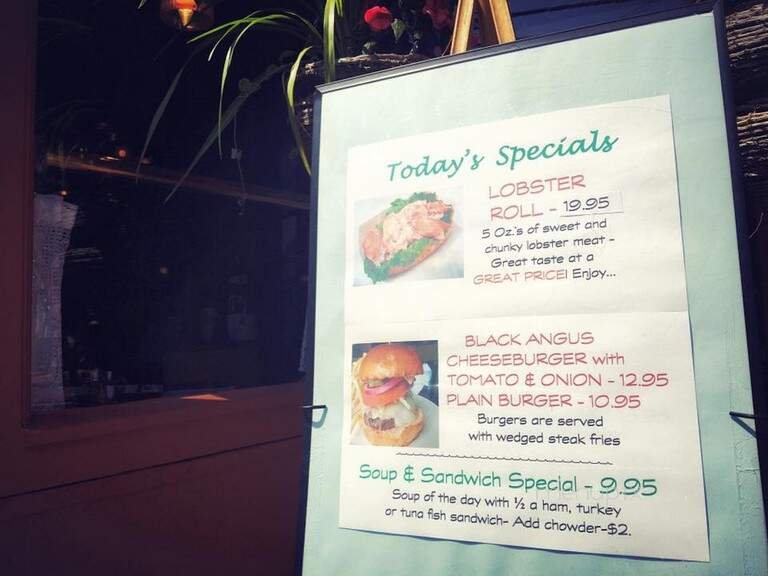 Today's Specials
LOBSTER
ROLL - 19.95
5 Oz.'s of sweet and
chunky lobster meat -
Great taste at a
GREAT PRICE! Enjoy...
BLACK ANGUS
CHEESEBURGER with
TOMATO & ONION - 12.95
PLAIN BURGER - 10.95
Burgers are served
with wedged steak fries
Soup & Sandwich Special - 9.95
Soup of the day with ½ a ham, turkey
or tuna fish sandwich- Add chowder-$2.